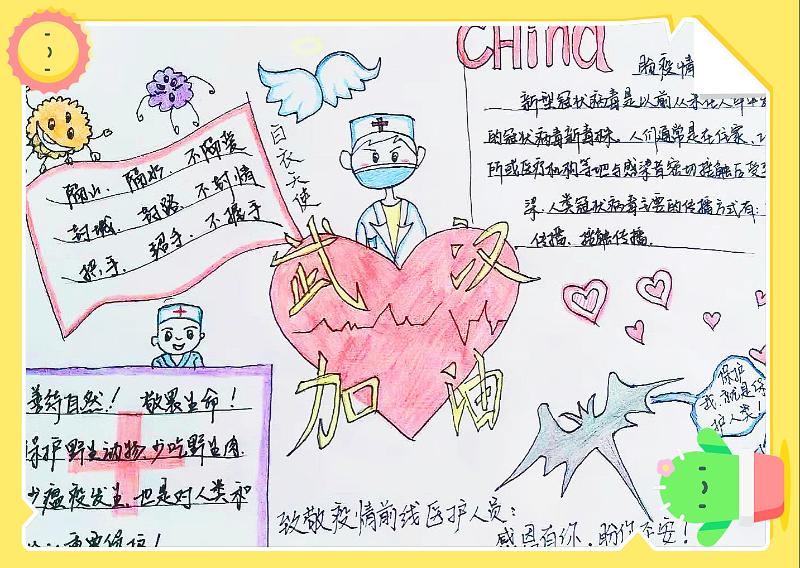 CHina
防疫情
新型冠状病毒是以前从未在人
的冠状病毒新毒株。人们通常是在住家、
所或医疗机构等地与感染者密切接触后受到
染。人类冠状病毒主要的传播方式有:
传播、接触传播。
白衣天使
隔山、隔水、不隔爱
封城、封路、不封情
携手、不握手
武汉
加油
善待自然! 敬畏生命!
保护野生动物,少吃野生肉.
少瘟疫发生,也是对人类和
保护
我,就是保
护人类!
致敬疫情前线医护人员:
感恩有你,盼你平安!